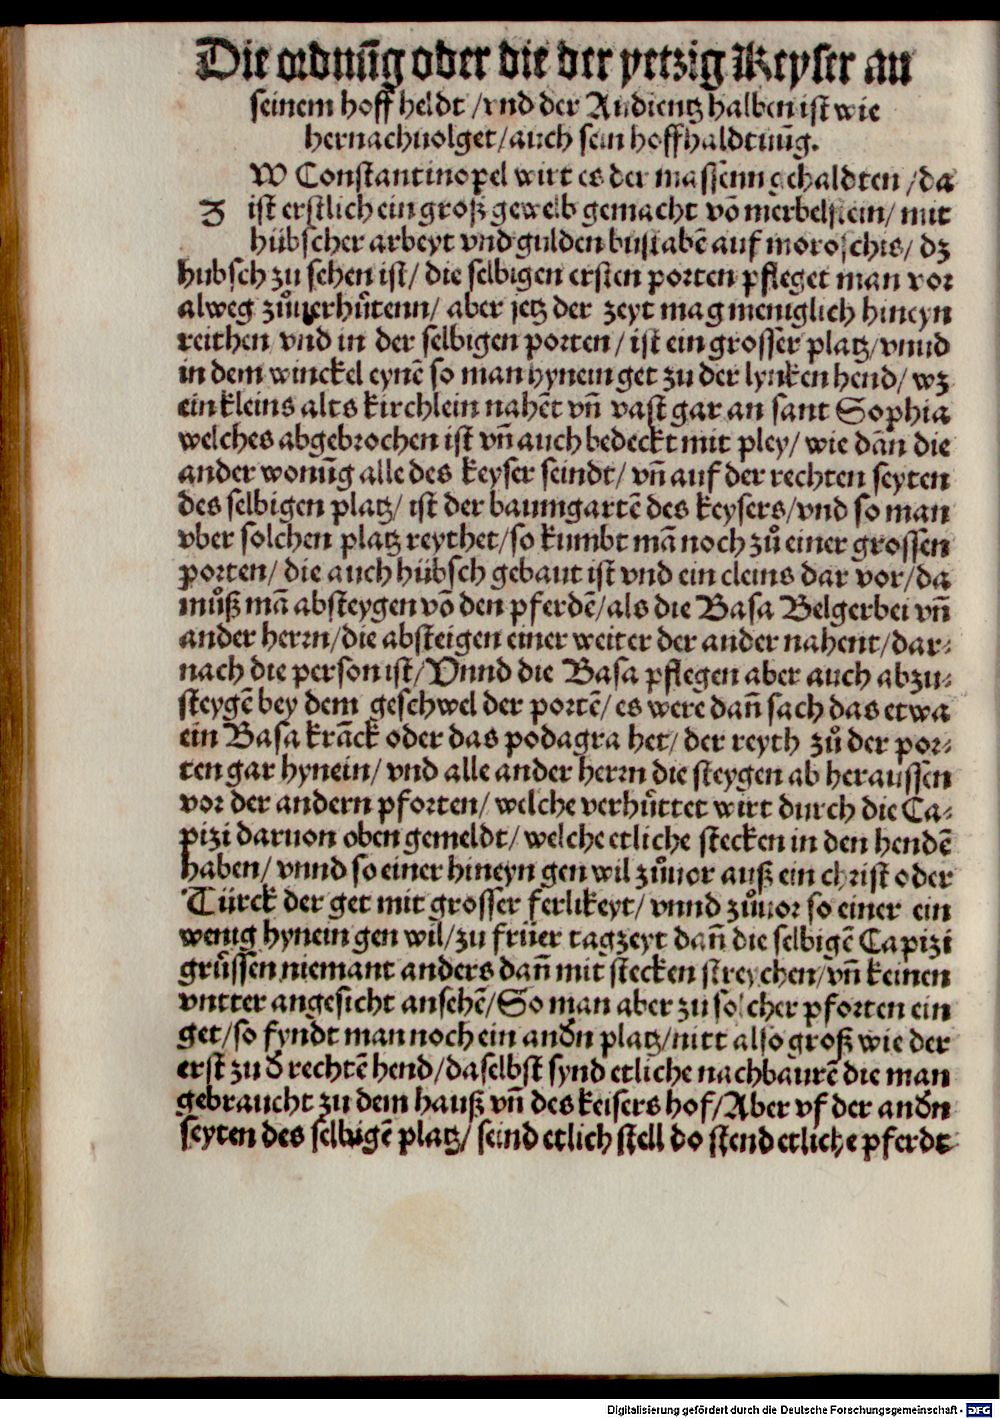 Die ordnūg oder die der yetzig Keyser an
seinem hoff heldt /vnd der Audientz halben ist wie
hernachuolget/auch sein hoffhaldtnūg.
W Constantinopel wirt es der massenn gehaldten /da
Z ist erstlich ein groß gewelb gemacht vō merbelstein/ mit
hübscher arbeyt vnd gulden bustabē auf moroschis/ dz
hubsch zu sehen ist/ die selbigen ersten porten pfleget man vor
alweg zůuerhůtenn/ aber jetz der zeyt mag meniglich hineyn
reithen vnd in der selbigen porten/ ist ein grosser platz/vnnd
in dem winckel eynē so man hynein get zu der lynken hend/ wz
ein kleins alts kirchlein nahēt vn̄ vast gar an sant Sophia
welches abgebrochen ist vn̄ auch bedeckt mit pley/ wie dān die
ander wonūg alle des keyser seindt/ vn̄ auf der rechten seyten
des selbigen platz/ ist der baumgartē des keysers/vnd so man
vber solchen platz reythet/so kumbt mā noch zů einer grossen
porten/ die auch hübsch gebaut ist vnd ein cleins dar vor/da
můß mā absteygen vō den pferdē/als die Basa Belgerbei vn̄
ander herrn/die absteigen einer weiter der ander nahent/dar⸗
nach die person ist/Vnnd die Basa pflegen aber auch abzu⸗
steygē bey dem geschwel der portē/ es were dan̄ sach das etwa
ein Basa krāck oder das podagra het/ der reyth zů der por⸗
ten gar hynein/ vnd alle ander herrn die steygen ab heraussen
vor der andern pforten/ welche verhůttet wirt durch die Ca⸗
pizi daruon oben gemeldt/ welche etliche stecken in den hendē
haben/ vnnd so einer hineyn gen wil zůuor auß ein christ oder
Türck der get mit grosser ferlikeyt/ vnnd zůuor so einer ein
wenig hynein gen wil/zu früer tagzeyt dan̄ die selbigē Capizi
grůssen niemant anders dan̄ mit stecken streychen/vn̄ keinen
vntter angesicht ansehē/So man aber zu solcher pforten ein
get/so fyndt man noch ein andn platz/nitt also groß wie der
erst zu d rechtē hend/daselbst synd etliche nachbaurē die man
gebraucht zu dem hauß vn̄ des keisers hof/Aber vf der andn
seyten des selbigē platz/ seind etlich stell do stend etliche pferdt
Digitalisierung gefördert durch die Deutsche Forschungsgemeinschaft - DFG